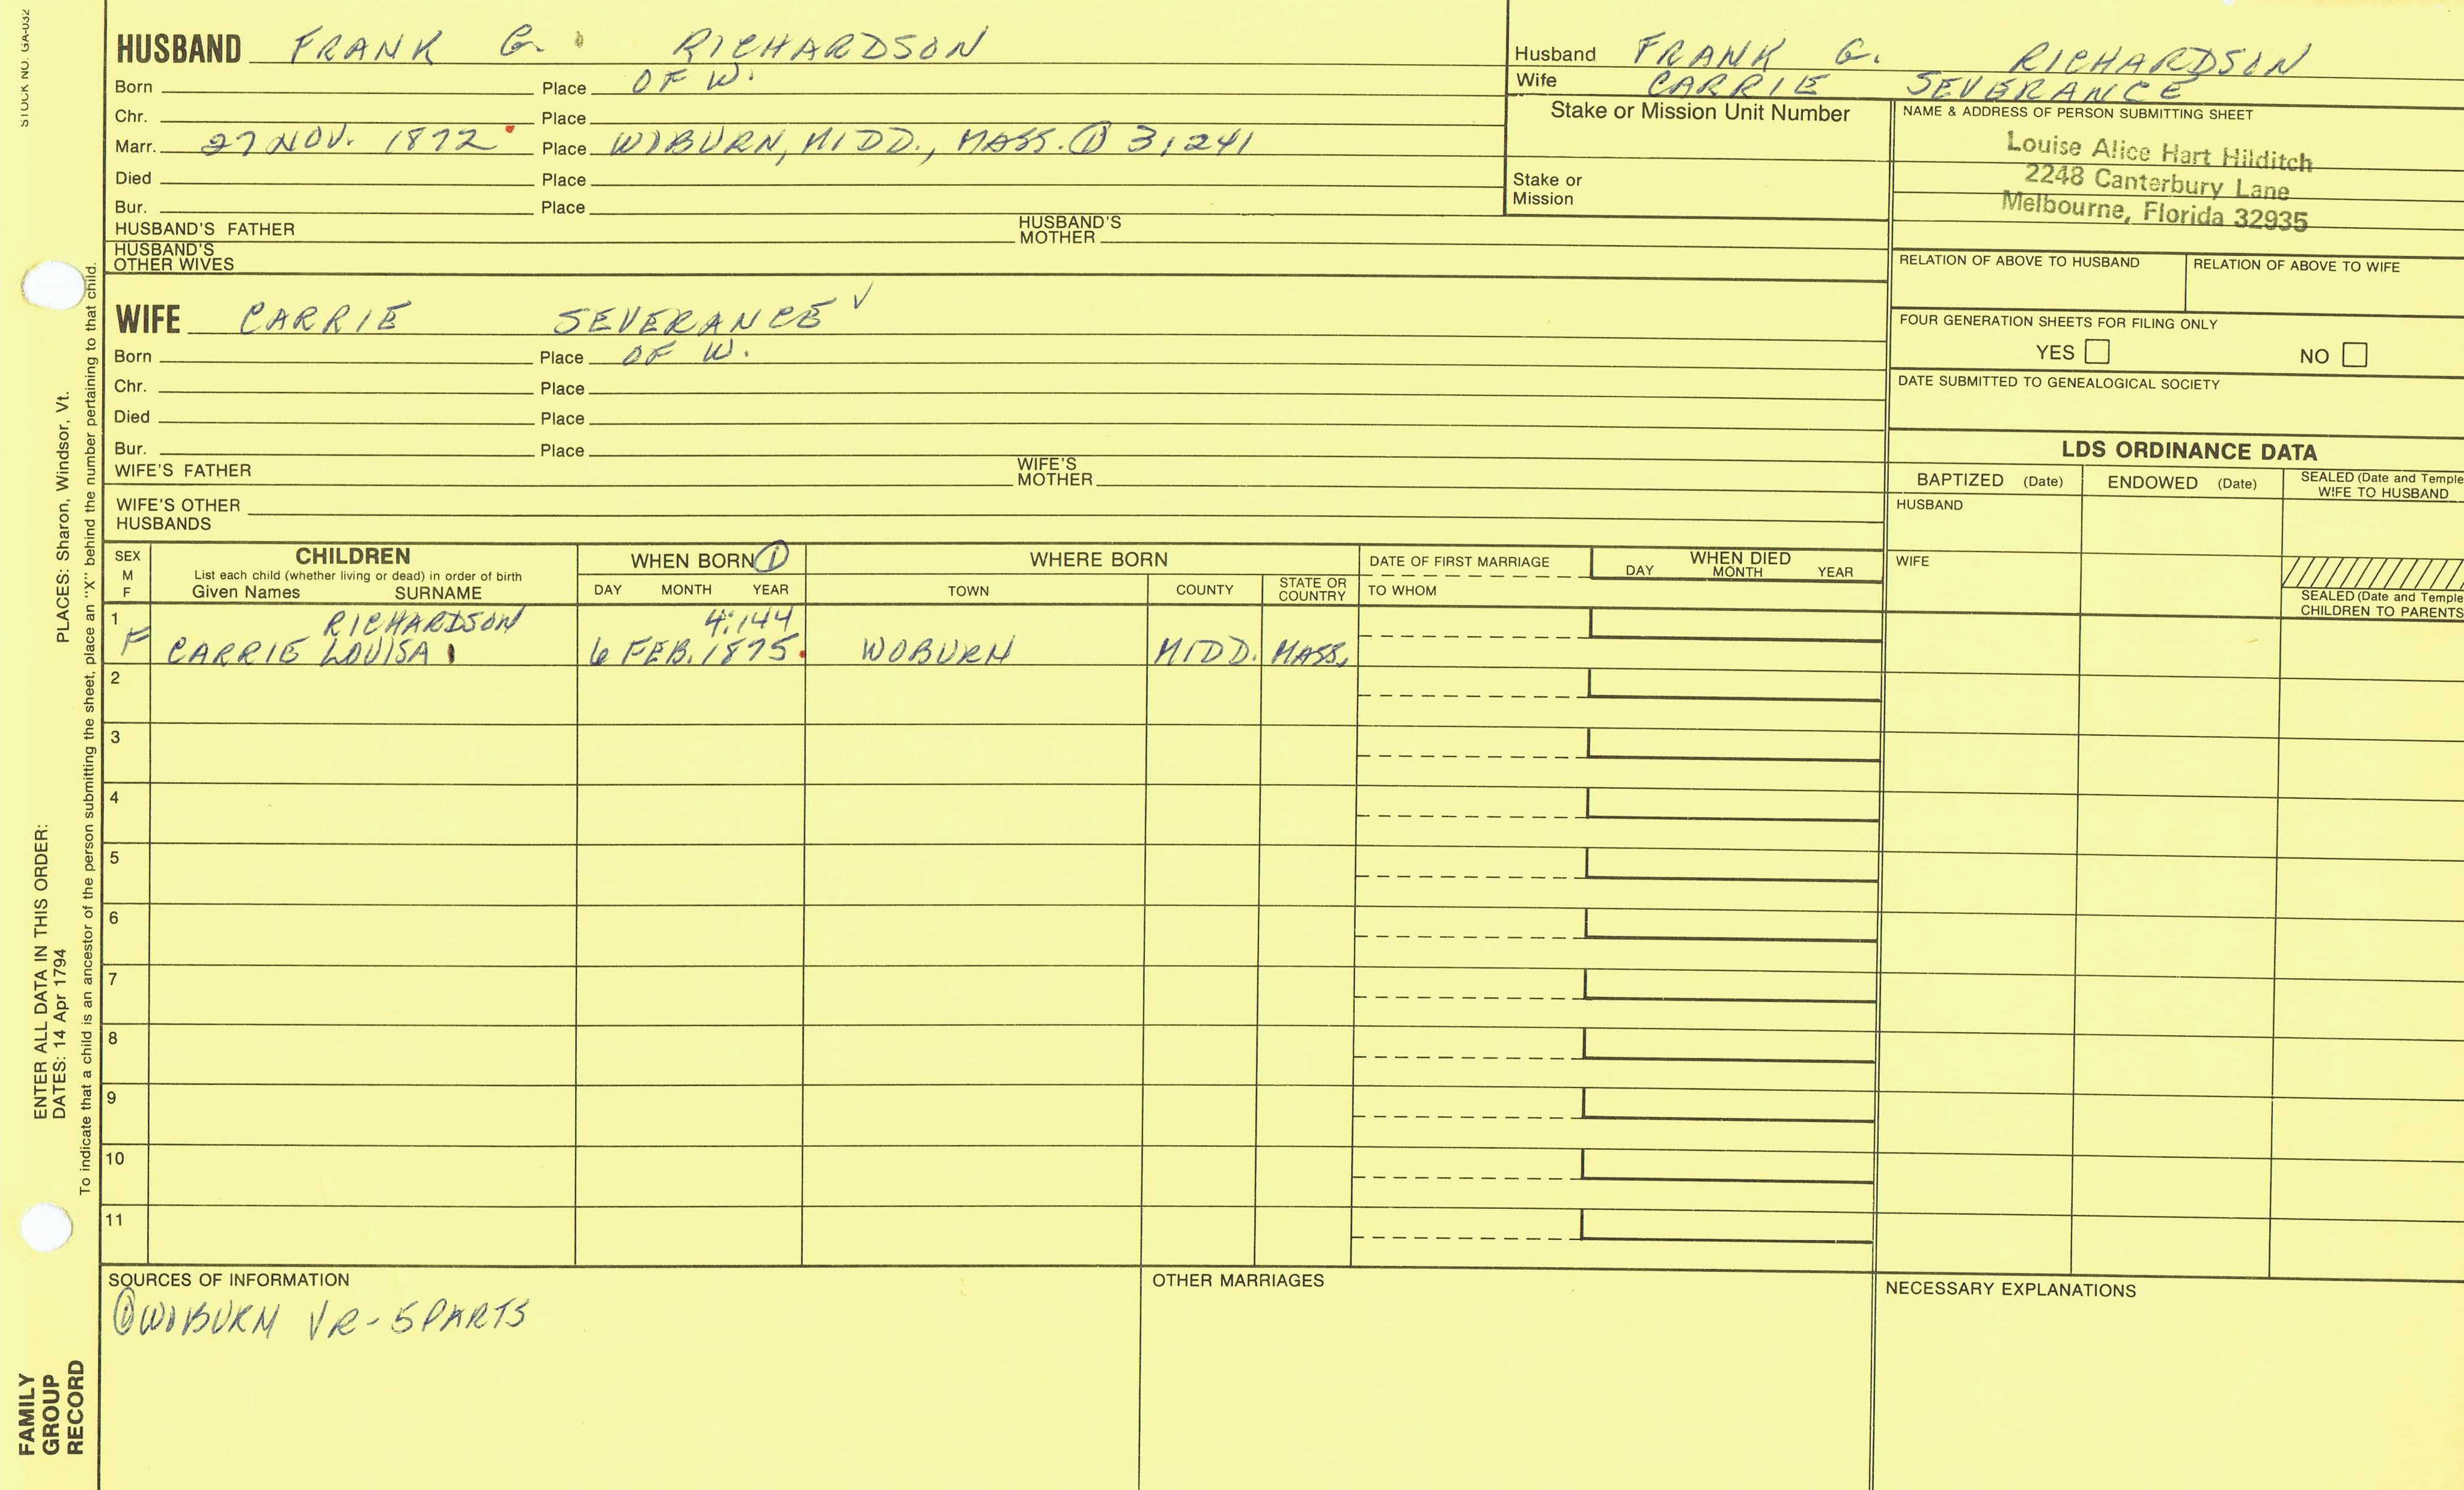 STOCK NO. GA-032
HUSBAND FRANK G. RICHARDSON
Born Place OF W.
Chr. Place
Marr. 27 NOV. 1872 Place WOBURN, MIDD., MASS. ① 3;241
Died Place
Bur. Place
HUSBAND'S FATHER HUSBAND'S MOTHER
HUSBAND'S OTHER WIVES
WIFE CARRIE SEVERANCE ✓
Born Place OF W.
Chr. Place
Died Place
Bur. Place
WIFE'S FATHER WIFE'S MOTHER
WIFE'S OTHER HUSBANDS
Husband FRANK G. RICHARDSON
Wife CARRIE SEVERANCE
Stake or Mission Unit Number
Stake or
Mission
NAME & ADDRESS OF PERSON SUBMITTING SHEET
Louise Alice Hart Hilditch
2248 Canterbury Lane
Melbourne, Florida 32935
RELATION OF ABOVE TO HUSBAND RELATION OF ABOVE TO WIFE
FOUR GENERATION SHEETS FOR FILING ONLY
YES NO
DATE SUBMITTED TO GENEALOGICAL SOCIETY
LDS ORDINANCE DATA
BAPTIZED (Date) ENDOWED (Date) SEALED (Date and Temple
WIFE TO HUSBAND
HUSBAND
WIFE
SEALED (Date and Temple
CHILDREN TO PARENTS
SEX CHILDREN WHEN BORN ① WHERE BORN DATE OF FIRST MARRIAGE WHEN DIED
M List each child (whether living or dead) in order of birth DAY MONTH YEAR
F Given Names SURNAME DAY MONTH YEAR TOWN COUNTY STATE OR COUNTRY TO WHOM
1 RICHARDSON 4:144
F CARRIE LOUISA 6 FEB. 1875. WOBURN MIDD. MASS.
2
3
4
5
6
7
8
9
10
11
SOURCES OF INFORMATION OTHER MARRIAGES NECESSARY EXPLANATIONS
① WOBURN VR - 5 PARTS
ENTER ALL DATA IN THIS ORDER:
DATES: 14 Apr 1794 PLACES: Sharon, Windsor, Vt.
To indicate that a child is an ancestor of the person submitting the sheet, place an "X" behind the number pertaining to that child.
FAMILY
GROUP
RECORD